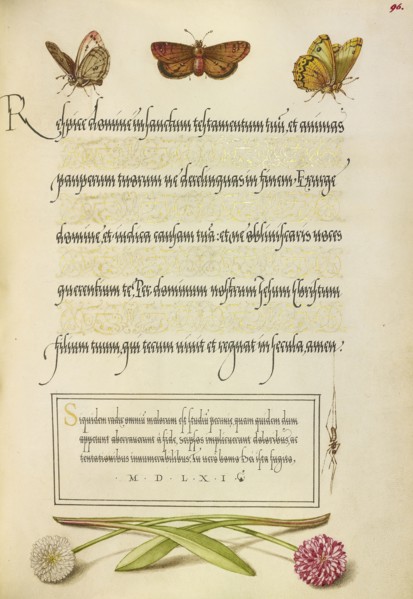 96.
Respice domine in sanctum testamentum tuũ, et animas
pauperum tuorum ne derelinquas in finem. Exurge
domine, et iudica causam tuã: et ne obliuiscaris uoces
querentium te. Per dominum nostrum Jesum Christum
filium tuum, qui tecum uiuit et regnat in secula, amen.
Siquidem radix omniũ malorum est studiũ pecuniæ, quam quidem dum
appetunt aberrauerunt à fide, seipsos implicuerunt doloribus, ac
tentationibus innumerabilibus. Tu uero homo Dei ista fugito.
·M·D·LXI·